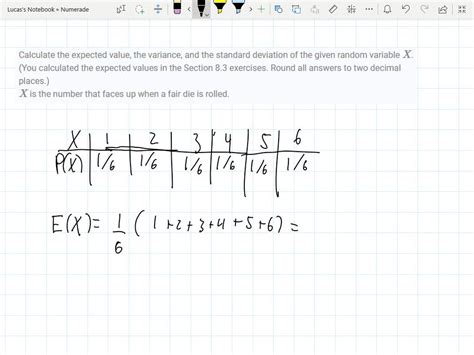 Lucas's Notebook » Numerade
Calculate the expected value, the variance, and the standard deviation of the given random variable X.
(You calculated the expected values in the Section 8.3 exercises. Round all answers to two decimal
places.)
X is the number that faces up when a fair die is rolled.
X 1 2 3 4 5 6
P(X) 1/6 1/6 1/6 1/6 1/6 1/6
E(X) = 1/6 ( 1+2+3+4+5+6) =